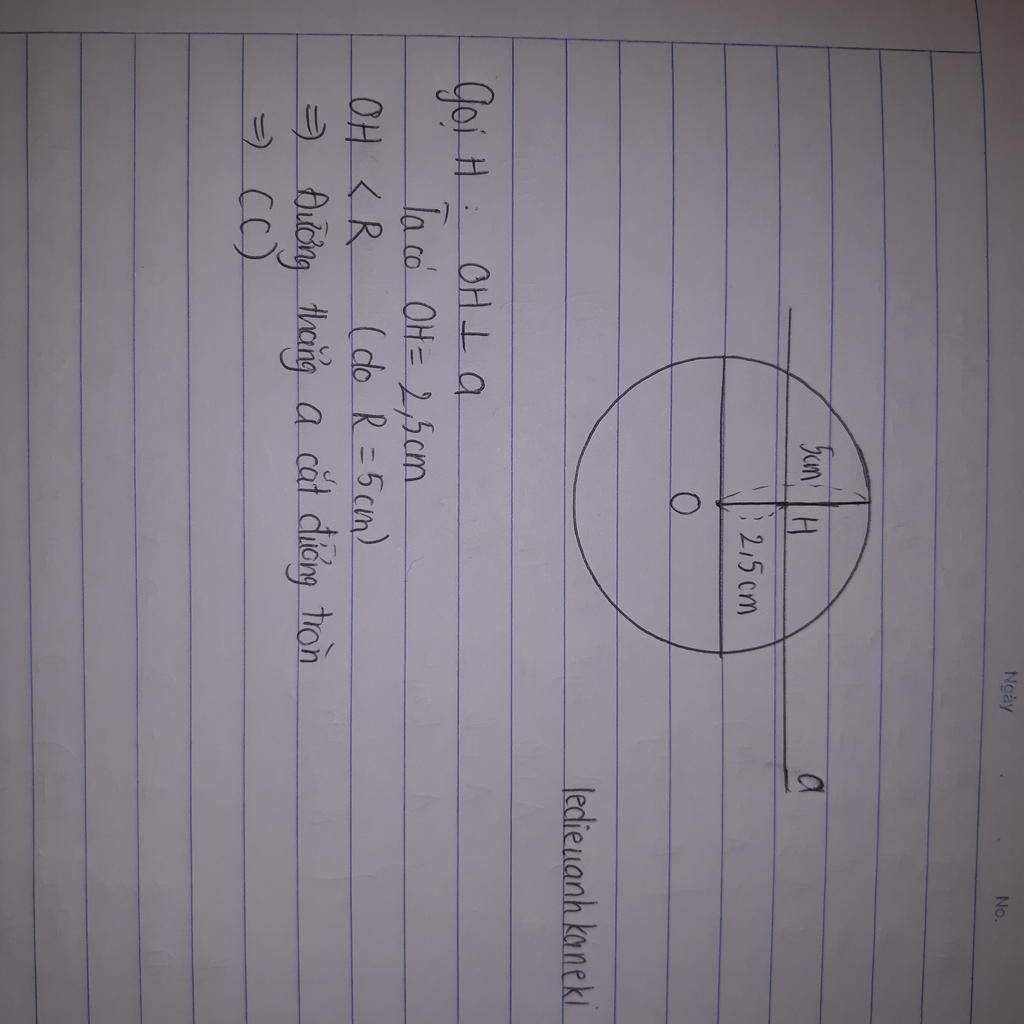 Ngày
No.
a
5cm
H
2,5cm
O
ledieuanhkaneki
Gọi H : OH ⊥ a
Ta có OH = 2,5cm
OH < R (do R = 5cm)
=) Đường thẳng a cắt đường tròn
=) (C)